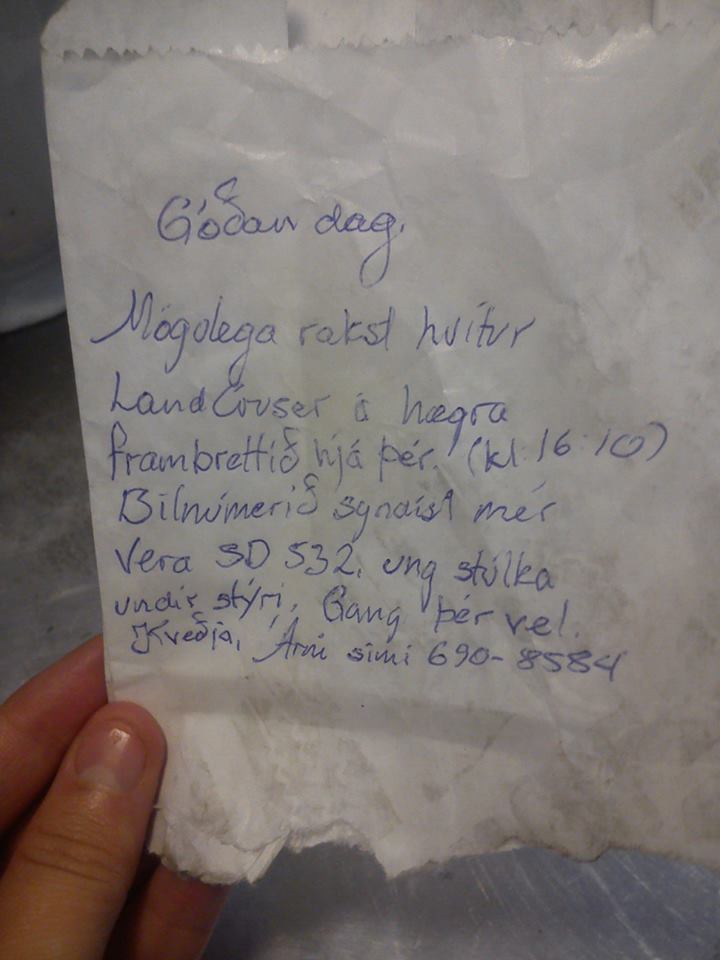 Góðan dag.
Mögulega rakst hvítur
LandCruser á hægra
frambrettið hjá þér. (kl. 16:10)
Bílnúmerið sýndist mér
vera SD 532, ung stúlka
undir stýri. Gang þér vel.
Kveðja, Árni sími 690-8584